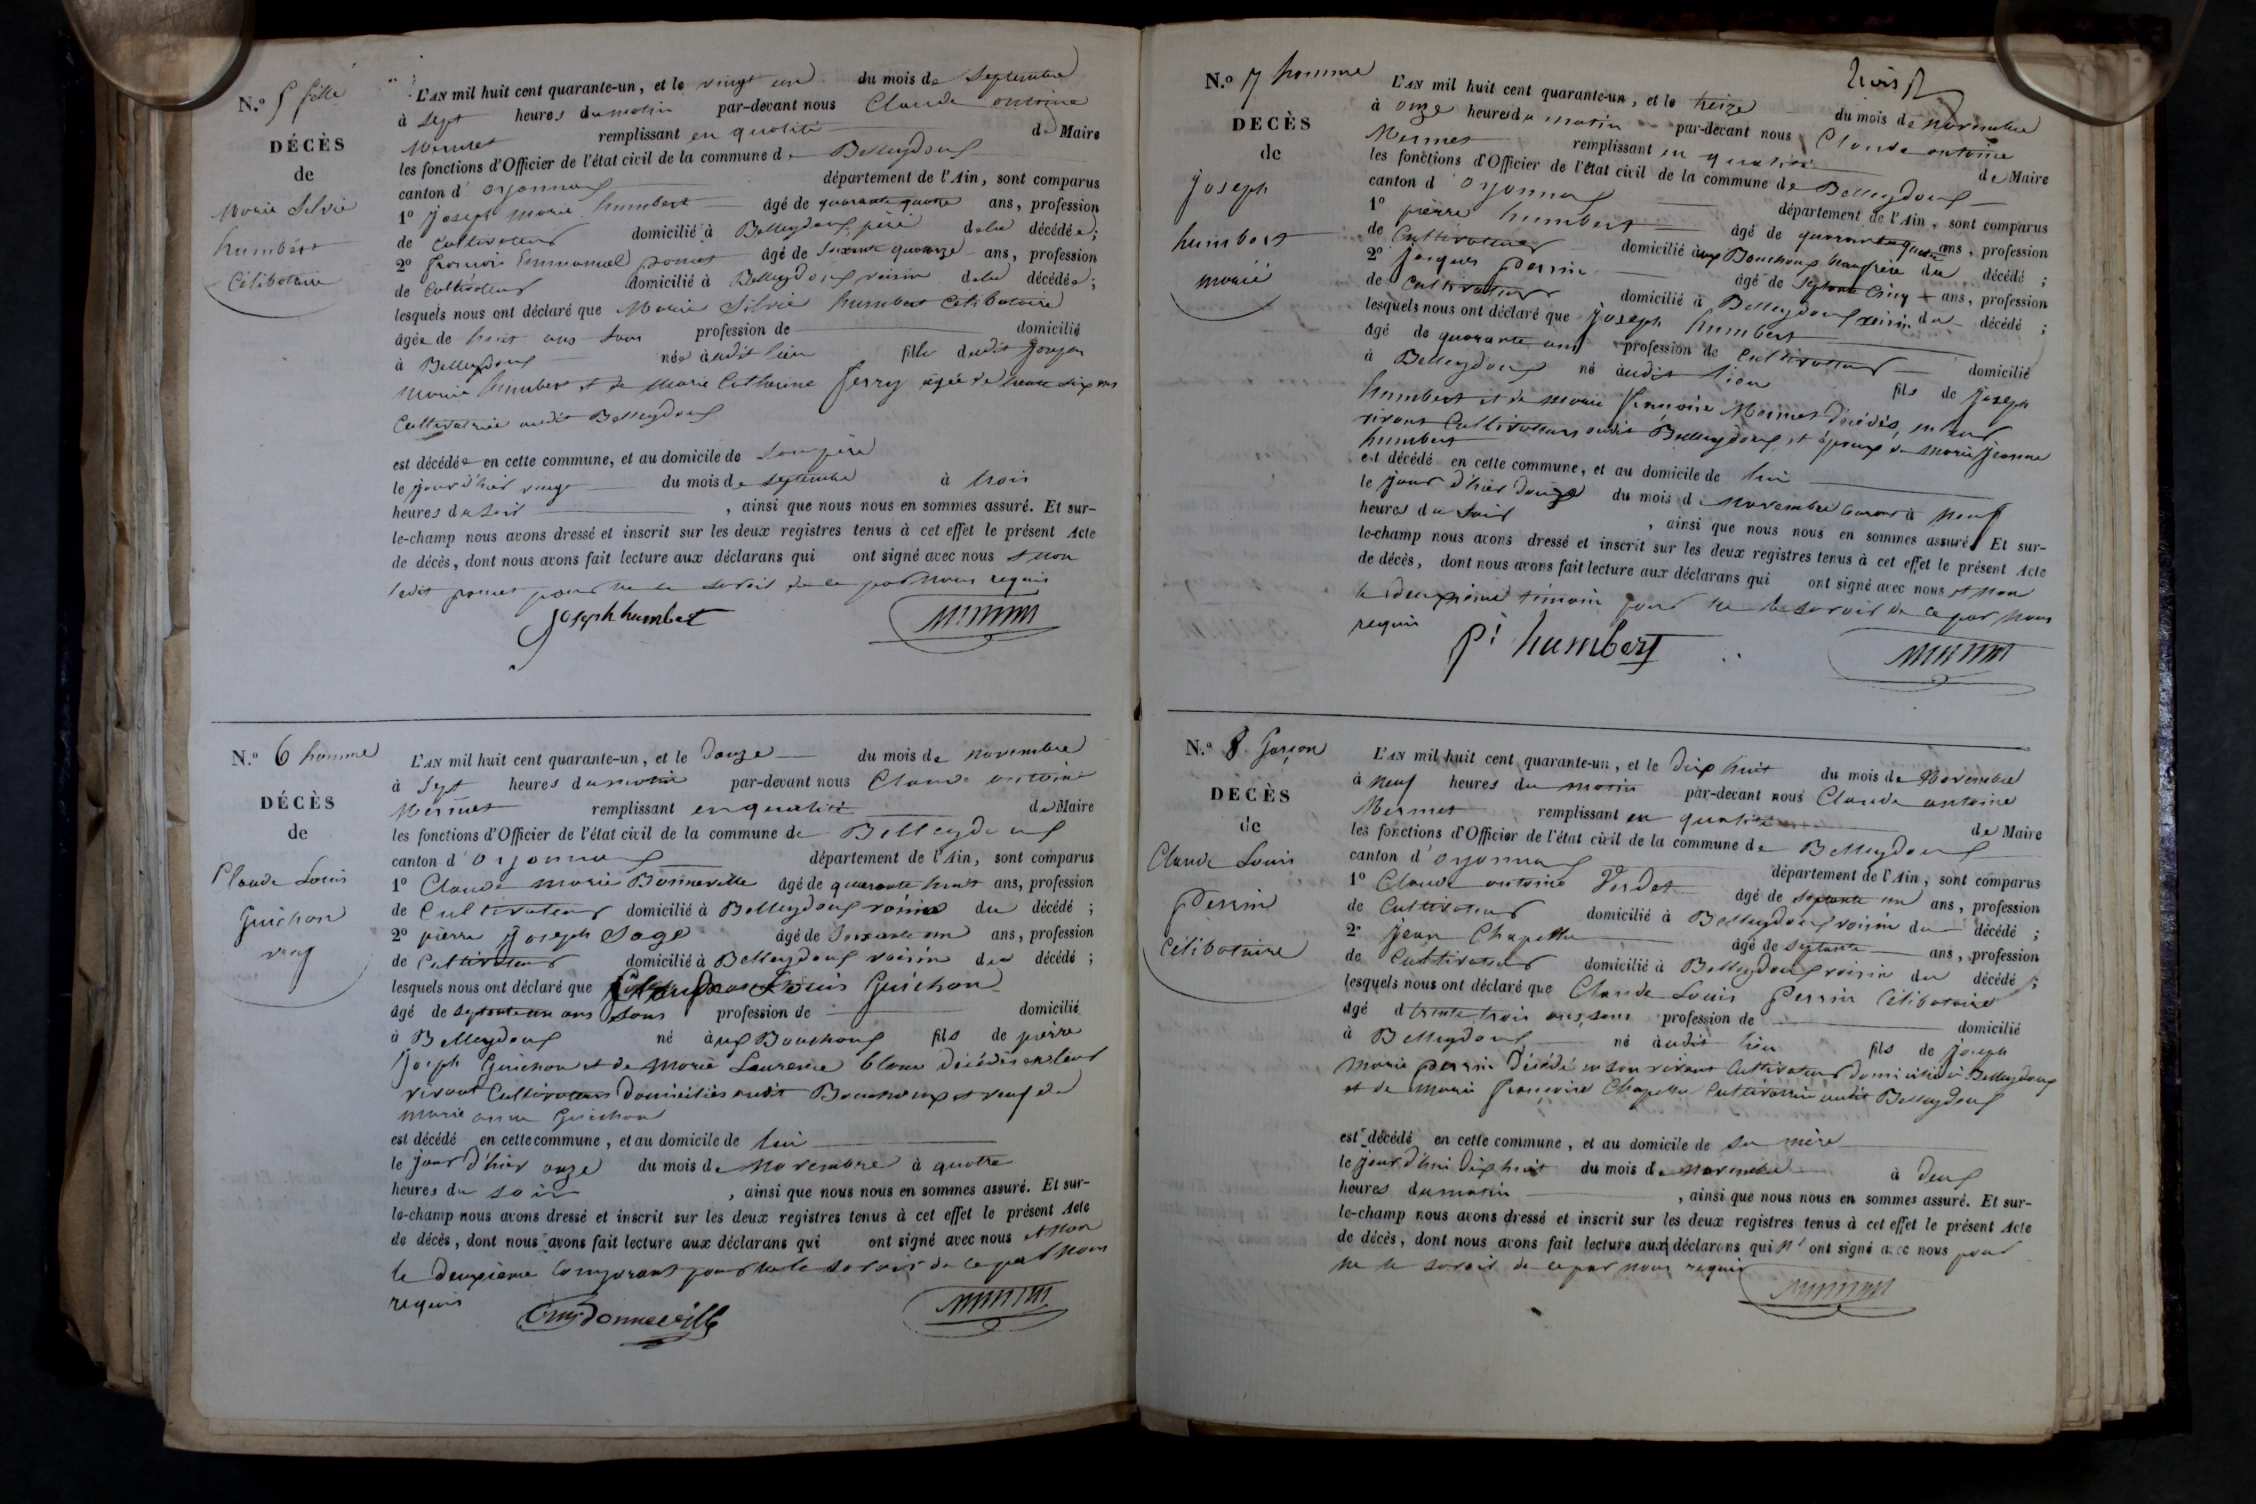 N.o 5 fille
DÉCÈS
de
Marie Silvie
humbert
Célibataire
L'AN mil huit cent quarante-un, et le vingt un du mois de Septembre
à Sept heures du matin par-devant nous Claude antoine
Mermet remplissant en qualité de Maire
les fonctions d'Officier de l'état civil de la commune de Belleydoux
canton d'oyonnax département de l'Ain, sont comparus
1o Joseph Marie humbert âgé de quarante quatre ans, profession
de Cultivateur domicilié à Belleydoux, père de la décédée;
2o françois Emmanuel âgé de Soixante quatorze ans, profession
de Cultivateur domicilié à Belleydoux voisin de la décédée;
lesquels nous ont déclaré que Marie Silvie humbert Célibataire
âgée de huit ans Sans profession de domicilié
à Belleydoux née audit lieu fille dudit Joseph
Marie humbert et de Marie Catherine âgée de trente six ans
Cultivatrice audit Belleydoux
est décédée en cette commune, et au domicile de Son père
le jour d'hier vingt du mois de Septembre à trois
heures du Soir, ainsi que nous nous en sommes assuré. Et sur-
le-champ nous avons dressé et inscrit sur les deux registres tenus à cet effet le présent Acte
de décès, dont nous avons fait lecture aux déclarans qui ont signé avec nous et non
ledit pour ne le Savoir de ce par Nous requis
Joseph humbert Mermet
N.o 6 homme
DÉCÈS
de
Claude Louis
Guichon
veuf
L'AN mil huit cent quarante-un, et le Douze du mois de Novembre
à Sept heures du matin par-devant nous Claude antoine
Mermet remplissant en qualité de Maire
les fonctions d'Officier de l'état civil de la commune de Belleydoux
canton d'oyonnax département de l'Ain, sont comparus
1o Claude Marie Bonneville âgé de quarante huit ans, profession
de Cultivateur domicilié à Belleydoux voisin du décédé;
2o pierre Joseph Sage âgé de Soixante un ans, profession
de Cultivateur domicilié à Belleydoux voisin du décédé;
lesquels nous ont déclaré que Louis Guichon
âgé de septante un ans Sans profession de domicilié
à Belleydoux né aux Bouchoux fils de pierre
Joseph Guichon et de Marie Laurence blanc décédés en leur
vivant Cultivateurs Domiciliés audit Bouchoux et veuf de
Marie anne Guichon
est décédé en cette commune, et au domicile de lui
le jour d'hier onze du mois de Novembre à quatre
heures du soir, ainsi que nous nous en sommes assuré. Et sur-
le-champ nous avons dressé et inscrit sur les deux registres tenus à cet effet le présent Acte
de décès, dont nous avons fait lecture aux déclarans qui ont signé avec nous et Non
le Deuxième Comparant pour ne le Savoir de ce par Nous
requis
Bonneville Mermet
N.o 7 homme
DECÈS
de
Joseph
humbert
marié
L'AN mil huit cent quarante-un, et le treize du mois de Novembre
à onze heures du matin par-devant nous Claude antoine
Mermet remplissant en qualité de Maire
les fonctions d'Officier de l'état civil de la commune de Belleydoux
canton d'oyonnax département de l'Ain, sont comparus
1o pierre humbert âgé de quarante quatre ans, profession
de Cultivateur domicilié aux Bouchoux beaufrère du décédé;
2o Jacques Perrin âgé de Septante Cinq ans, profession
de Cultivateur domicilié à Belleydoux voisin du décédé;
lesquels nous ont déclaré que Joseph humbert
âgé de quarante ans profession de Cultivateur domicilié
à Belleydoux né audit lieu fils de Joseph
humbert et de Marie françoise Mermet décédés, en leur
vivant Cultivateurs audit Belleydoux et époux de Marie Jeanne
humbert
est décédé en cette commune, et au domicile de lui
le jour d'hier douze du mois de Novembre Courant à Neuf
heures du Soir, ainsi que nous nous en sommes assuré. Et sur-
le-champ nous avons dressé et inscrit sur les deux registres tenus à cet effet le présent Acte
de décès, dont nous avons fait lecture aux déclarans qui ont signé avec nous et Non
le deuxième témoin pour ne le savoir de ce par Nous
requis
Pi humbert Mermet
N.o 8 Garçon
DECÈS
de
Claude Louis
Perrin
Célibataire
L'AN mil huit cent quarante-un, et le Dix huit du mois de Novembre
à Neuf heures du matin par-devant nous Claude antoine
Mermet remplissant en qualité de Maire
les fonctions d'Officier de l'état civil de la commune de Belleydoux
canton d'oyonnax département de l'Ain, sont comparus
1o Claude antoine Verdet âgé de septante un ans, profession
de Cultivateur domicilié à Belleydoux voisin du décédé;
2o Jean Chapelle âgé de septante ans, profession
de Cultivateur domicilié à Belleydoux voisin du décédé;
lesquels nous ont déclaré que Claude Louis Perrin Célibataire
âgé d trente trois ans, sans profession de domicilié
à Belleydoux né audit lieu fils de Joseph
Marie Perrin Décédé en son vivant Cultivateur domicilié à Belleydoux
et de Marie françoise Chapelle Cultivatrice audit Belleydoux
est décédé en cette commune, et au domicile de sa mère
le jour d'hui Dix huit du mois de Novembre à Deux
heures du matin, ainsi que nous nous en sommes assuré. Et sur-
le-champ nous avons dressé et inscrit sur les deux registres tenus à cet effet le présent Acte
de décès, dont nous avons fait lecture aux déclarans qui n'ont signé avec nous pour
ne le savoir de ce par nous requis
Mermet